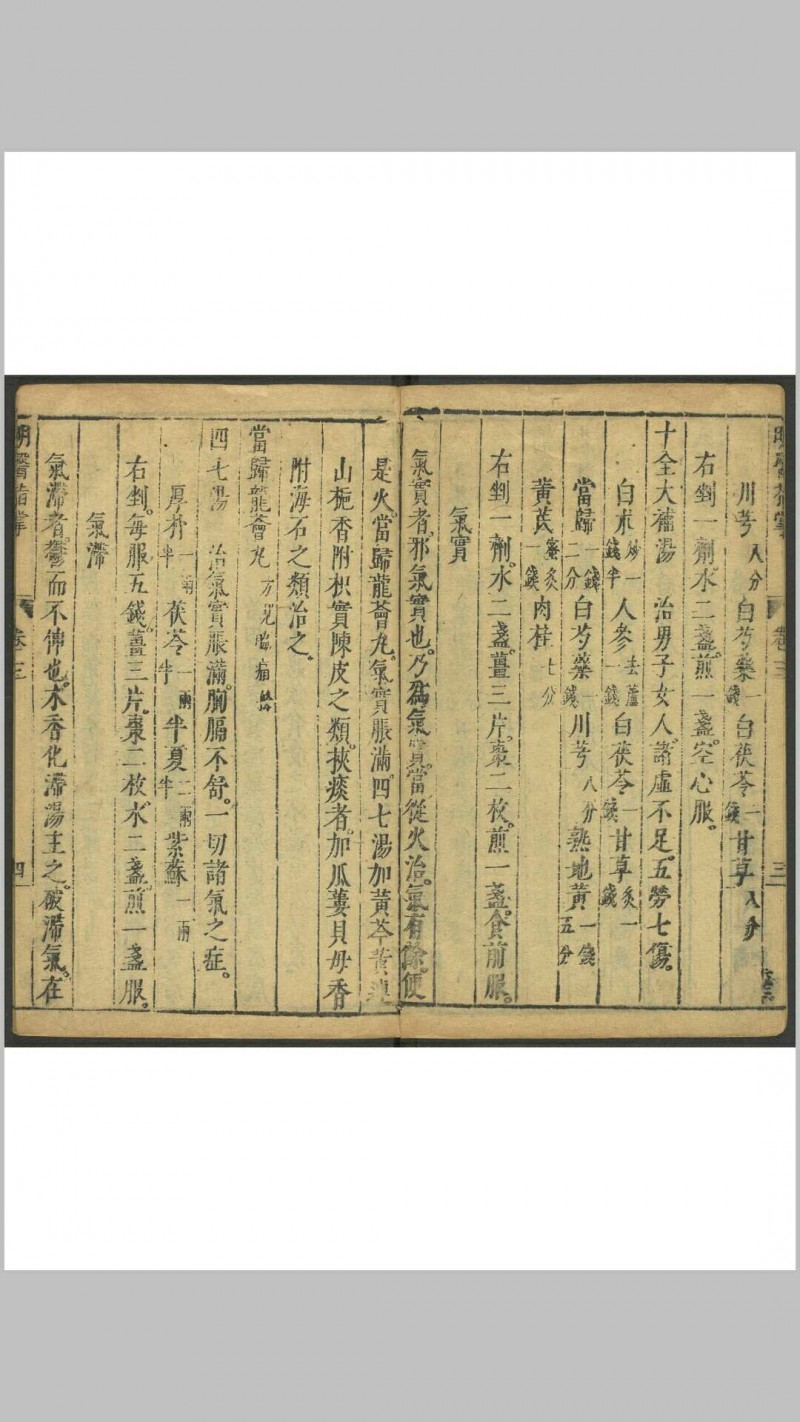 明醫指掌 卷三 三
川芎八分 白芍藥一錢 白茯苓一錢 甘草八分
右剉一劑水二盞煎一盞空心服。
十全大補湯 治男子女人諸虛不足。五勞七傷。
白朮炒一錢半 人參去蘆一錢 白茯苓一錢 甘草炙一錢
當歸一錢二分 白芍藥一錢 川芎八分 熟地黃一錢五分
黃芪蜜炙一錢 肉桂七分
右剉一劑。水二盞。薑三片。棗二枚。煎一盞。食前服。
氣實
氣實者。邪氣實也。乃爲氣實。當從火治。氣有餘便
是火。當歸龍薈丸。氣實脹滿。四七湯加黃芩黃連
山梔香附枳實陳皮之類。挾痰者。加瓜蔞貝母香
附海石之類治之。
當歸龍薈丸 方見
四七湯 治氣實脹滿。胸膈不舒。一切諸氣之症。
厚朴一兩半 茯苓一兩半 半夏二兩半 紫蘇一兩
右剉。每服五錢。薑三片。棗二枚。水二盞。煎一盞服。
氣滯
氣滯者。鬱而不伸也。木香化滯湯主之。破滯氣。在
明醫指掌 卷三 四